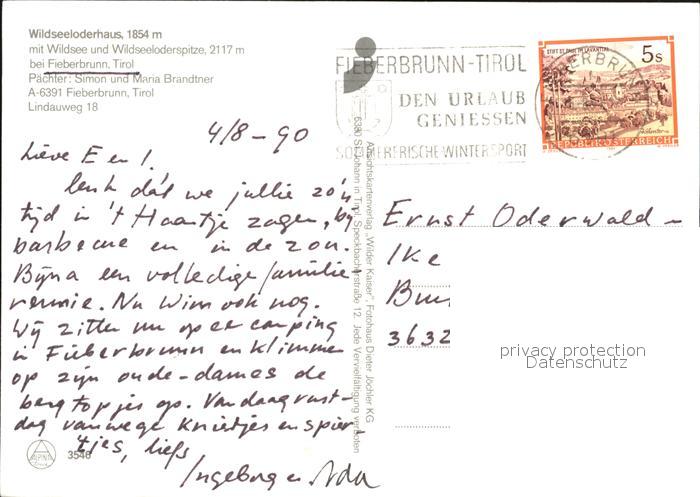 Wildseeloderhaus, 1854 m
mit Wildsee und Wildseeloderspitze, 2117 m
bei Fieberbrunn, Tirol
Pächter: Simon und Maria Brandtner
A-6391 Fieberbrunn, Tirol
Lindauweg 18
4/8-90
Lieve E en I.
Leuk dat we jullie zo'n
tijd in 't Haantje zagen, bij
barbecue en in de zon.
Bijna een volledige familie-
reünie. Nu Wim ook nog.
Wij zitten nu op een camping
in Fieberbrunn en klimmen
op zijn oude-dames de
bergtopjes op. Vandaag rust-
dag vanwege knietjes en spier-
tjes, liefs
Ingeborg en Ada
3546
ALPINA
Ansichtskartenverlag „Wilder Kaiser", Fotohaus Dieter Jöchler KG
6380 St. Johann in Tirol, Speckbacherstraße 12. Jede Vervielfältigung verboten
FIEBERBRUNN-TIROL
DEN URLAUB
GENIESSEN
WINTERSPORT
STIFT ST. PAUL IM LAVANTTAL
5s
REPUBLIK ÖSTERREICH
Ernst Oderwald-
Ike
3632
privacy protection
Datenschutz